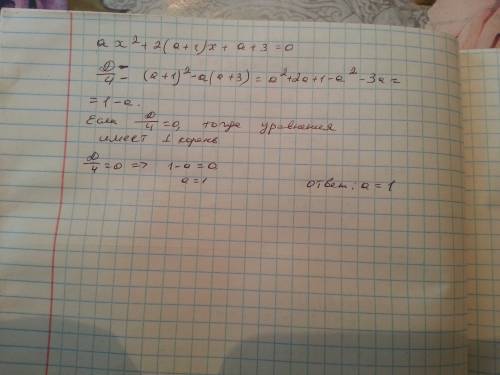 ax²+2(a+1)x+a+3=0
D/4= (a+1)²-a(a+3)=a²+2a+1-a²-3a=
=1-a.
Если D/4=0, тогда уравнения
имеет 1 корень
D/4=0 => 1-a=0
a=1
ответ: a=1